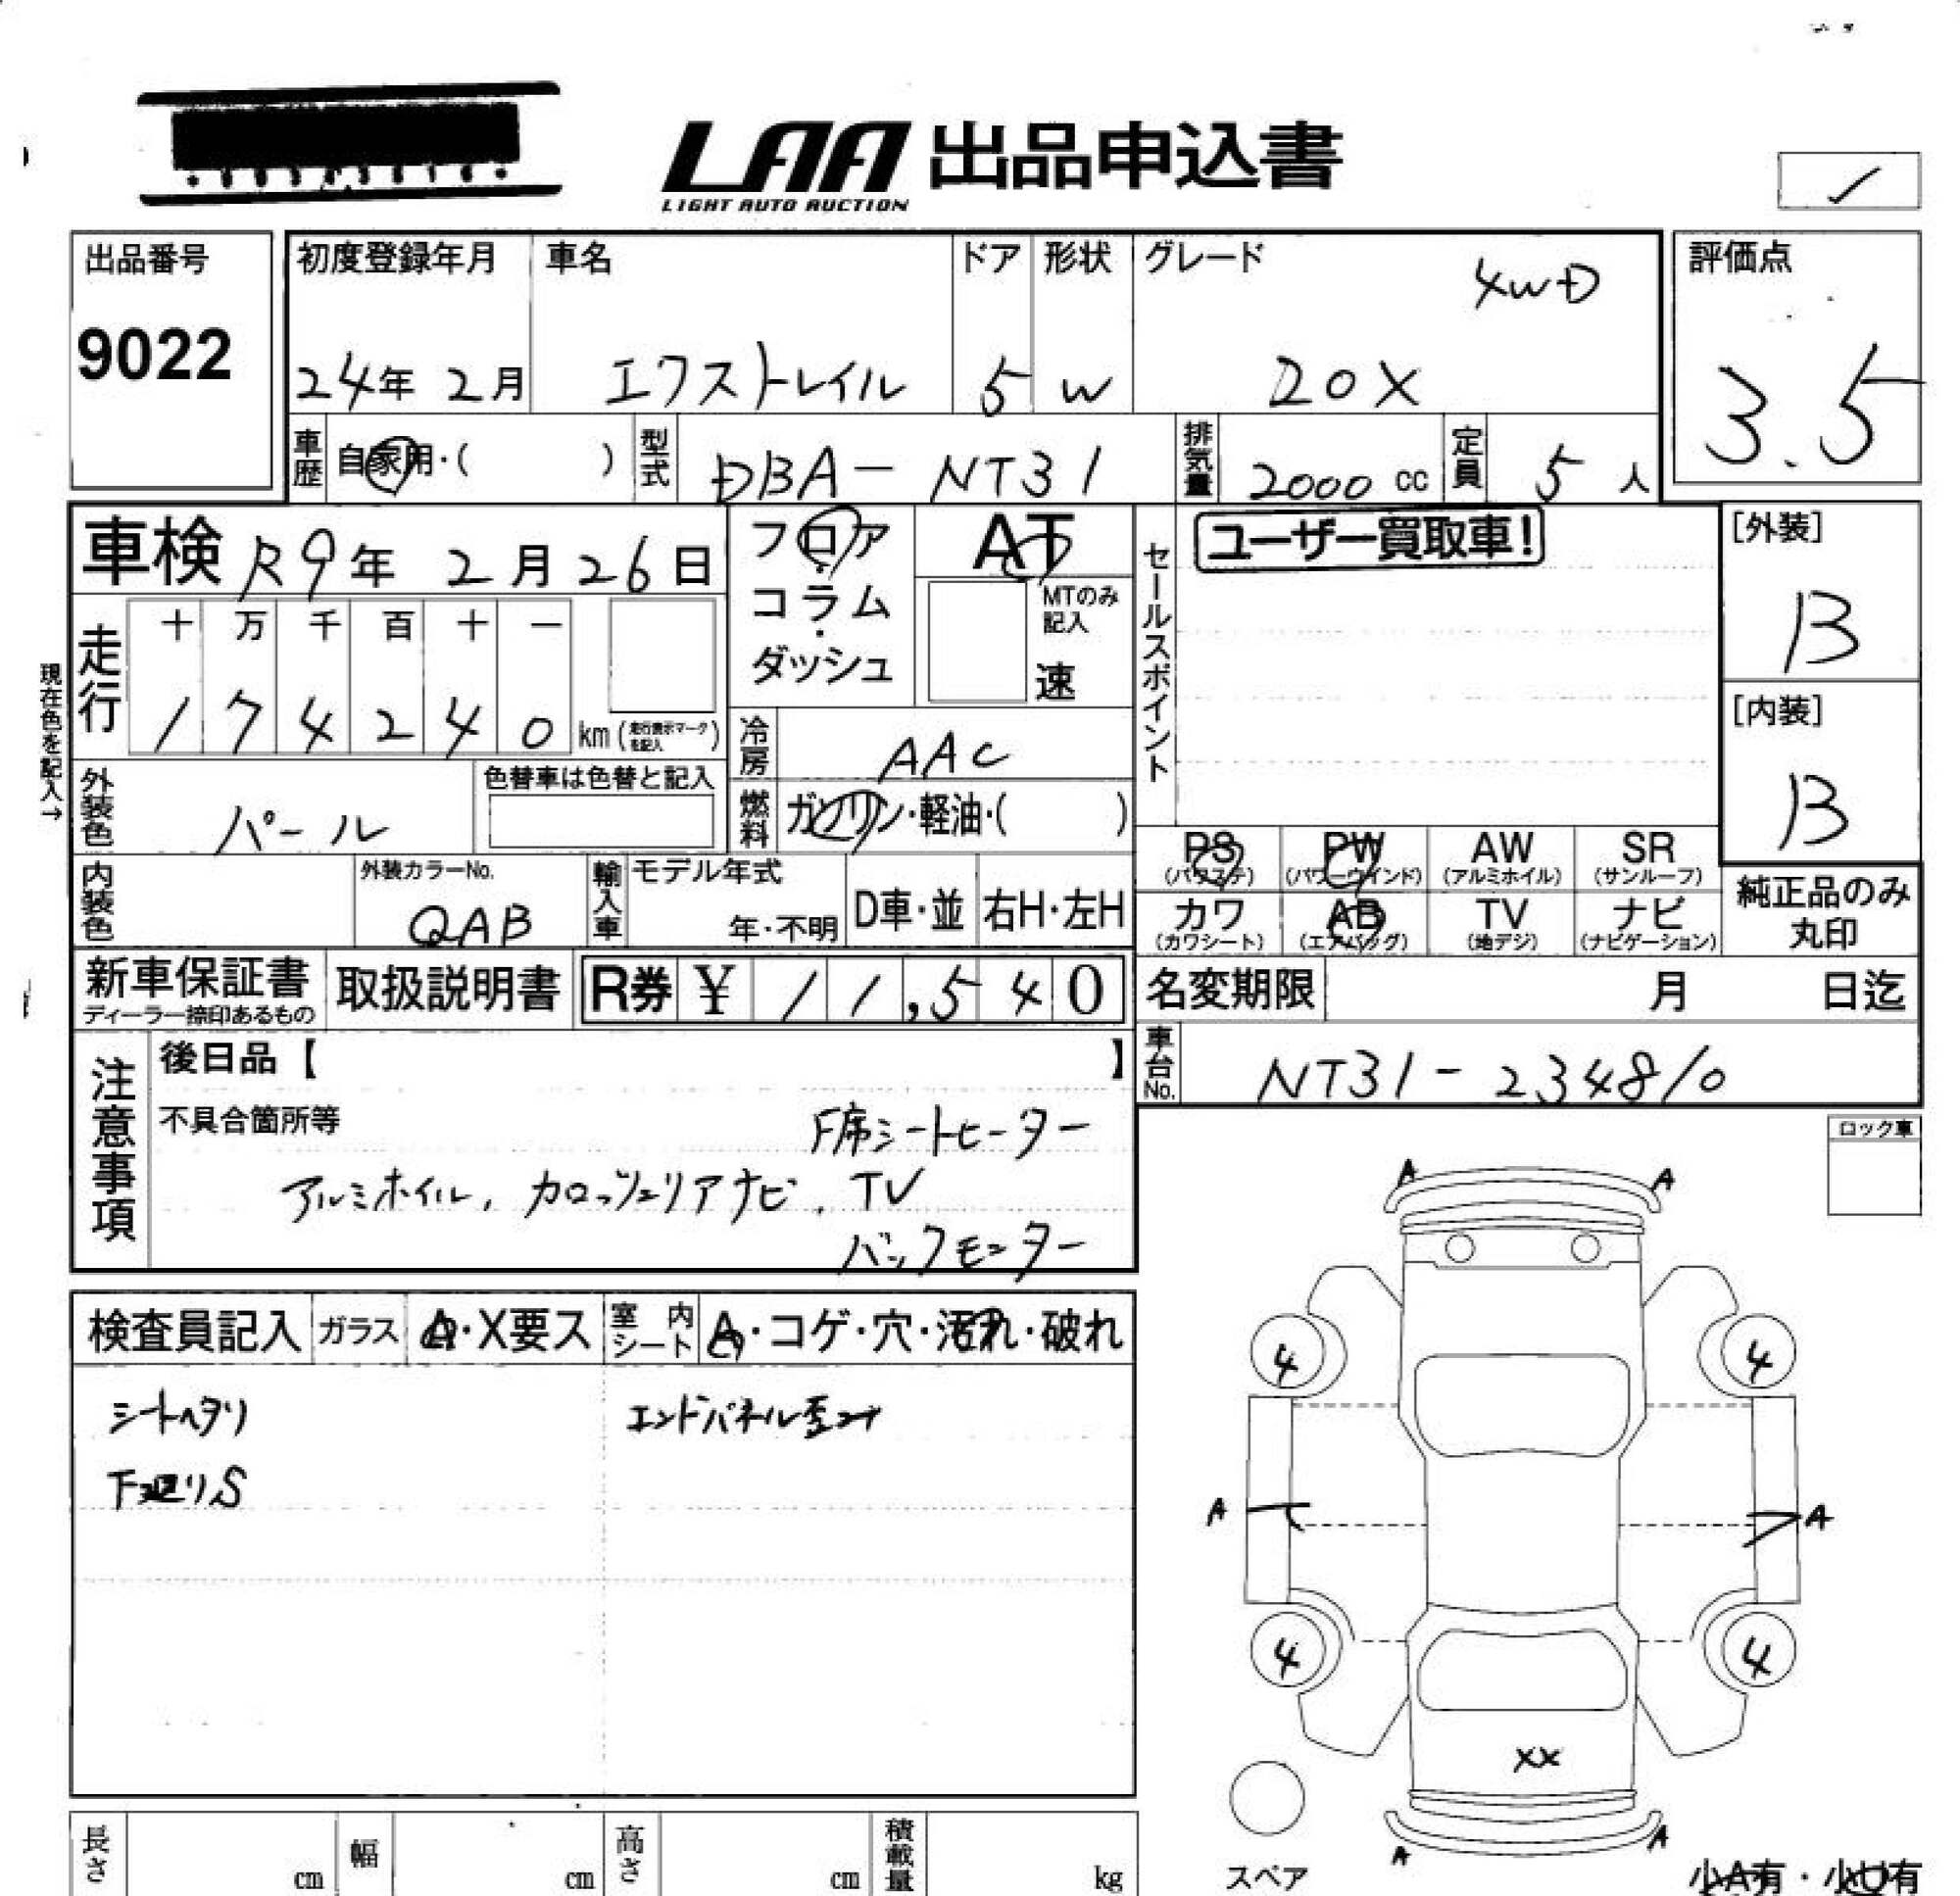 LAA 出品申込書
LIGHT AUTO AUCTION
出品番号
9022
初度登録年月
24年 2月
車名
エクストレイル
ドア
5
形状
W
グレード
4WD
20X
評価点
3.5
車歴
自家用・( )
型式
DBA－NT31
排気量
2000 cc
定員
5 人
車検 R9年 2月 26日
フロア・コラム・ダッシュ
AT
MTのみ記入
速
セールスポイント
ユーザー買取車!
[外装]
B
[内装]
B
現在色を記入→
走行
十 万 千 百 十 一
1 7 4 2 4 0 km (走行表示マークを記入)
冷房
AAC
外装色
パール
色替車は色替と記入
燃料
ガソリン・軽油・( )
PS (パワステ)
PW (パワーウインド)
AW (アルミホイル)
SR (サンルーフ)
カワ (カワシート)
AB (エアバッグ)
TV (地デジ)
ナビ (ナビゲーション)
純正品のみ丸印
内装色
外装カラーNo.
QAB
輸入車
モデル年式
年・不明
D車・並
右H・左H
新車保証書
ディーラー捺印あるもの
取扱説明書
R券 ¥ 11,540
名変期限 月 日迄
車台No.
NT31-234810
注意事項
後日品【 】
不具合箇所等
F席シートヒーター
アルミホイル, カロッツェリアナビ, TV
バックモニター
ロック車
検査員記入
ガラス
A・X要ス
室内シート
A・コゲ・穴・汚れ・破れ
シートヘタリ
エンドパネル歪み
下廻りS
A A
4 4
A A
4 4
XX
A A
スペア
小A有・小U有
長さ cm
幅 cm
高さ cm
積載量 kg